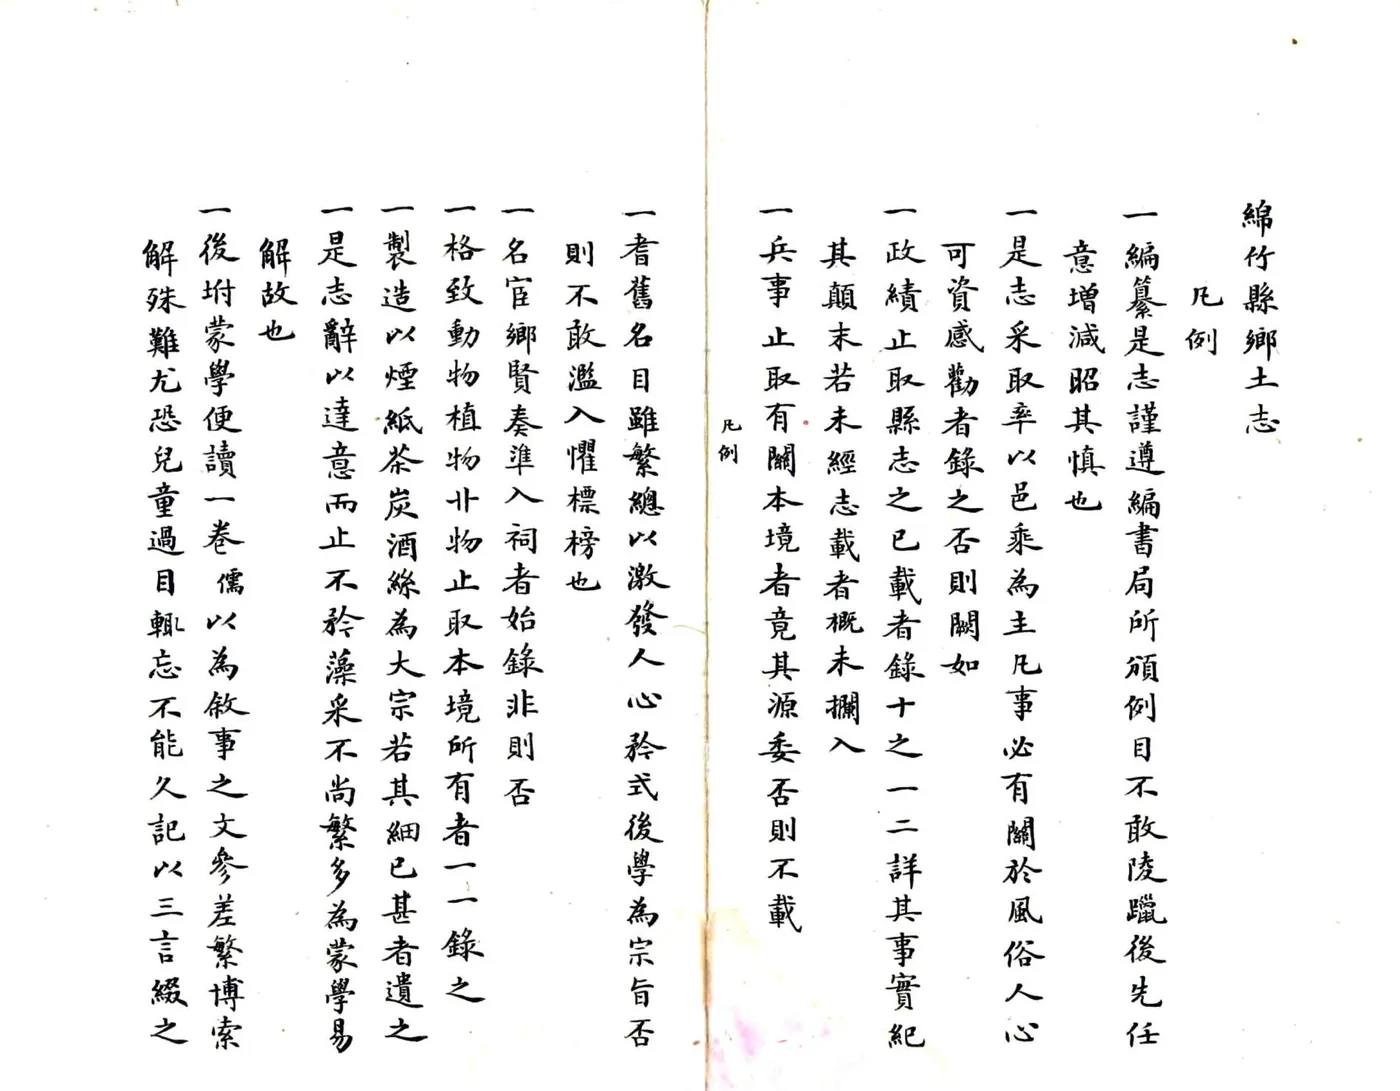 綿竹縣鄉土志
凡例
一編纂是志謹遵編書局所頒例目不敢陵躐後先任
意增減昭其慎也
一是志采取率以邑乘為主凡事必有關於風俗人心
可資感勸者錄之否則闕如
一政績止取縣志之已載者錄十之一二詳其事實紀
其顛末若未經志載者概未攔入
一兵事止取有關本境者竟其源委否則不載
凡例
一耆舊名目雖繁總以激發人心矜式後學為宗旨否
則不敢濫入懼標榜也
一名宦鄉賢奏準入祠者始錄非則否
一格致動物植物卝物止取本境所有者一一錄之
一製造以煙紙茶炭酒絲為大宗若其細已甚者遺之
一是志辭以達意而止不矜藻采不尚繁多為蒙學易
解故也
一後坿蒙學便讀一卷儒以為敘事之文參差繁博索
解殊難尤恐兒童過目輒忘不能久記以三言綴之